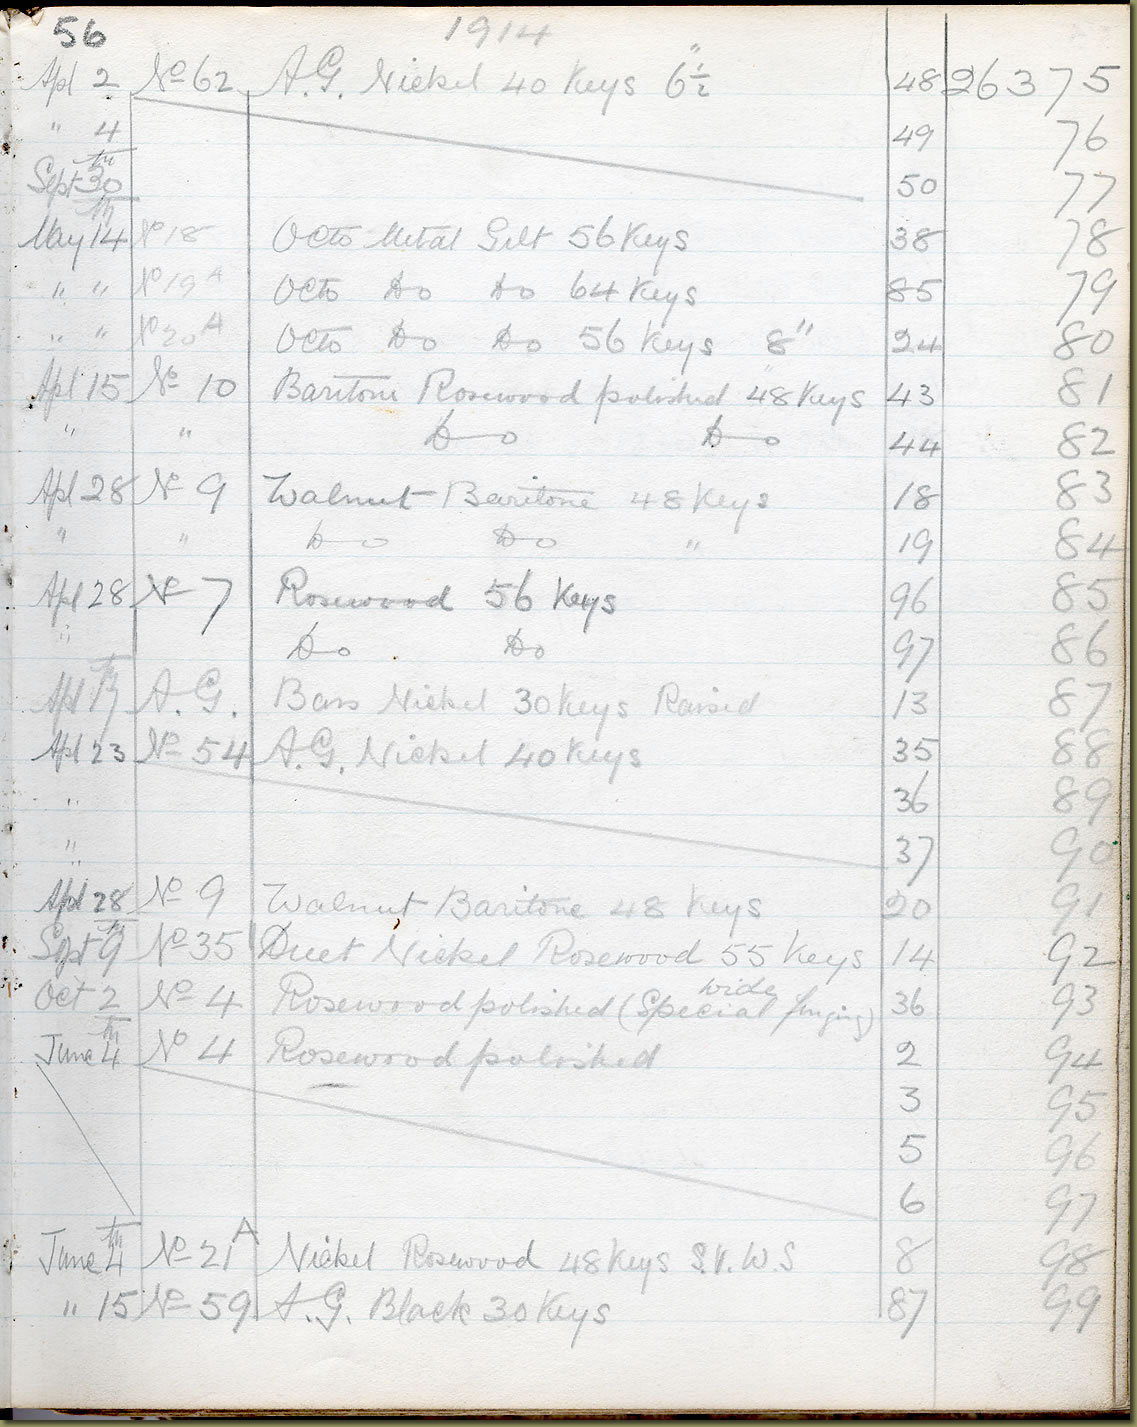 56 1914
Apl 2 No 62 A.G. Nickel 40 Keys 6½" 48 26375
" 4 49 76
Sept 30th 50 77
May 14th No 18 Octo Metal Gilt 56 Keys 38 78
" " No 19A Octo Do Do 64 Keys 85 79
" " No 20A Octo Do Do 56 Keys 8" 24 80
Apl 15 No 10 Baritone Rosewood polished 48 Keys 43 81
" " Do Do 44 82
Apl 28 No 9 Walnut Baritone 48 Keys 18 83
" " Do Do " 19 84
Apl 28 No 7 Rosewood 56 Keys 96 85
" Do Do 97 86
Apl 17th A.G. Bass Nickel 30 Keys Raised 13 87
Apl 23 No 54 A.G. Nickel 40 Keys 35 88
" 36 89
" 37 90
Apl 28 No 9 Walnut Baritone 48 Keys 20 91
Sept 9th No 35 Duet Nickel Rosewood 55 Keys 14 92
Oct 2 No 4 Rosewood polished (Special wide finging) 36 93
June 4th No 4 Rosewood polished 2 94
3 95
5 96
6 97
June 4th No 21A Nickel Rosewood 48 Keys S.V.W.S 8 98
" 15 No 59 A.G. Black 30 Keys 87 99